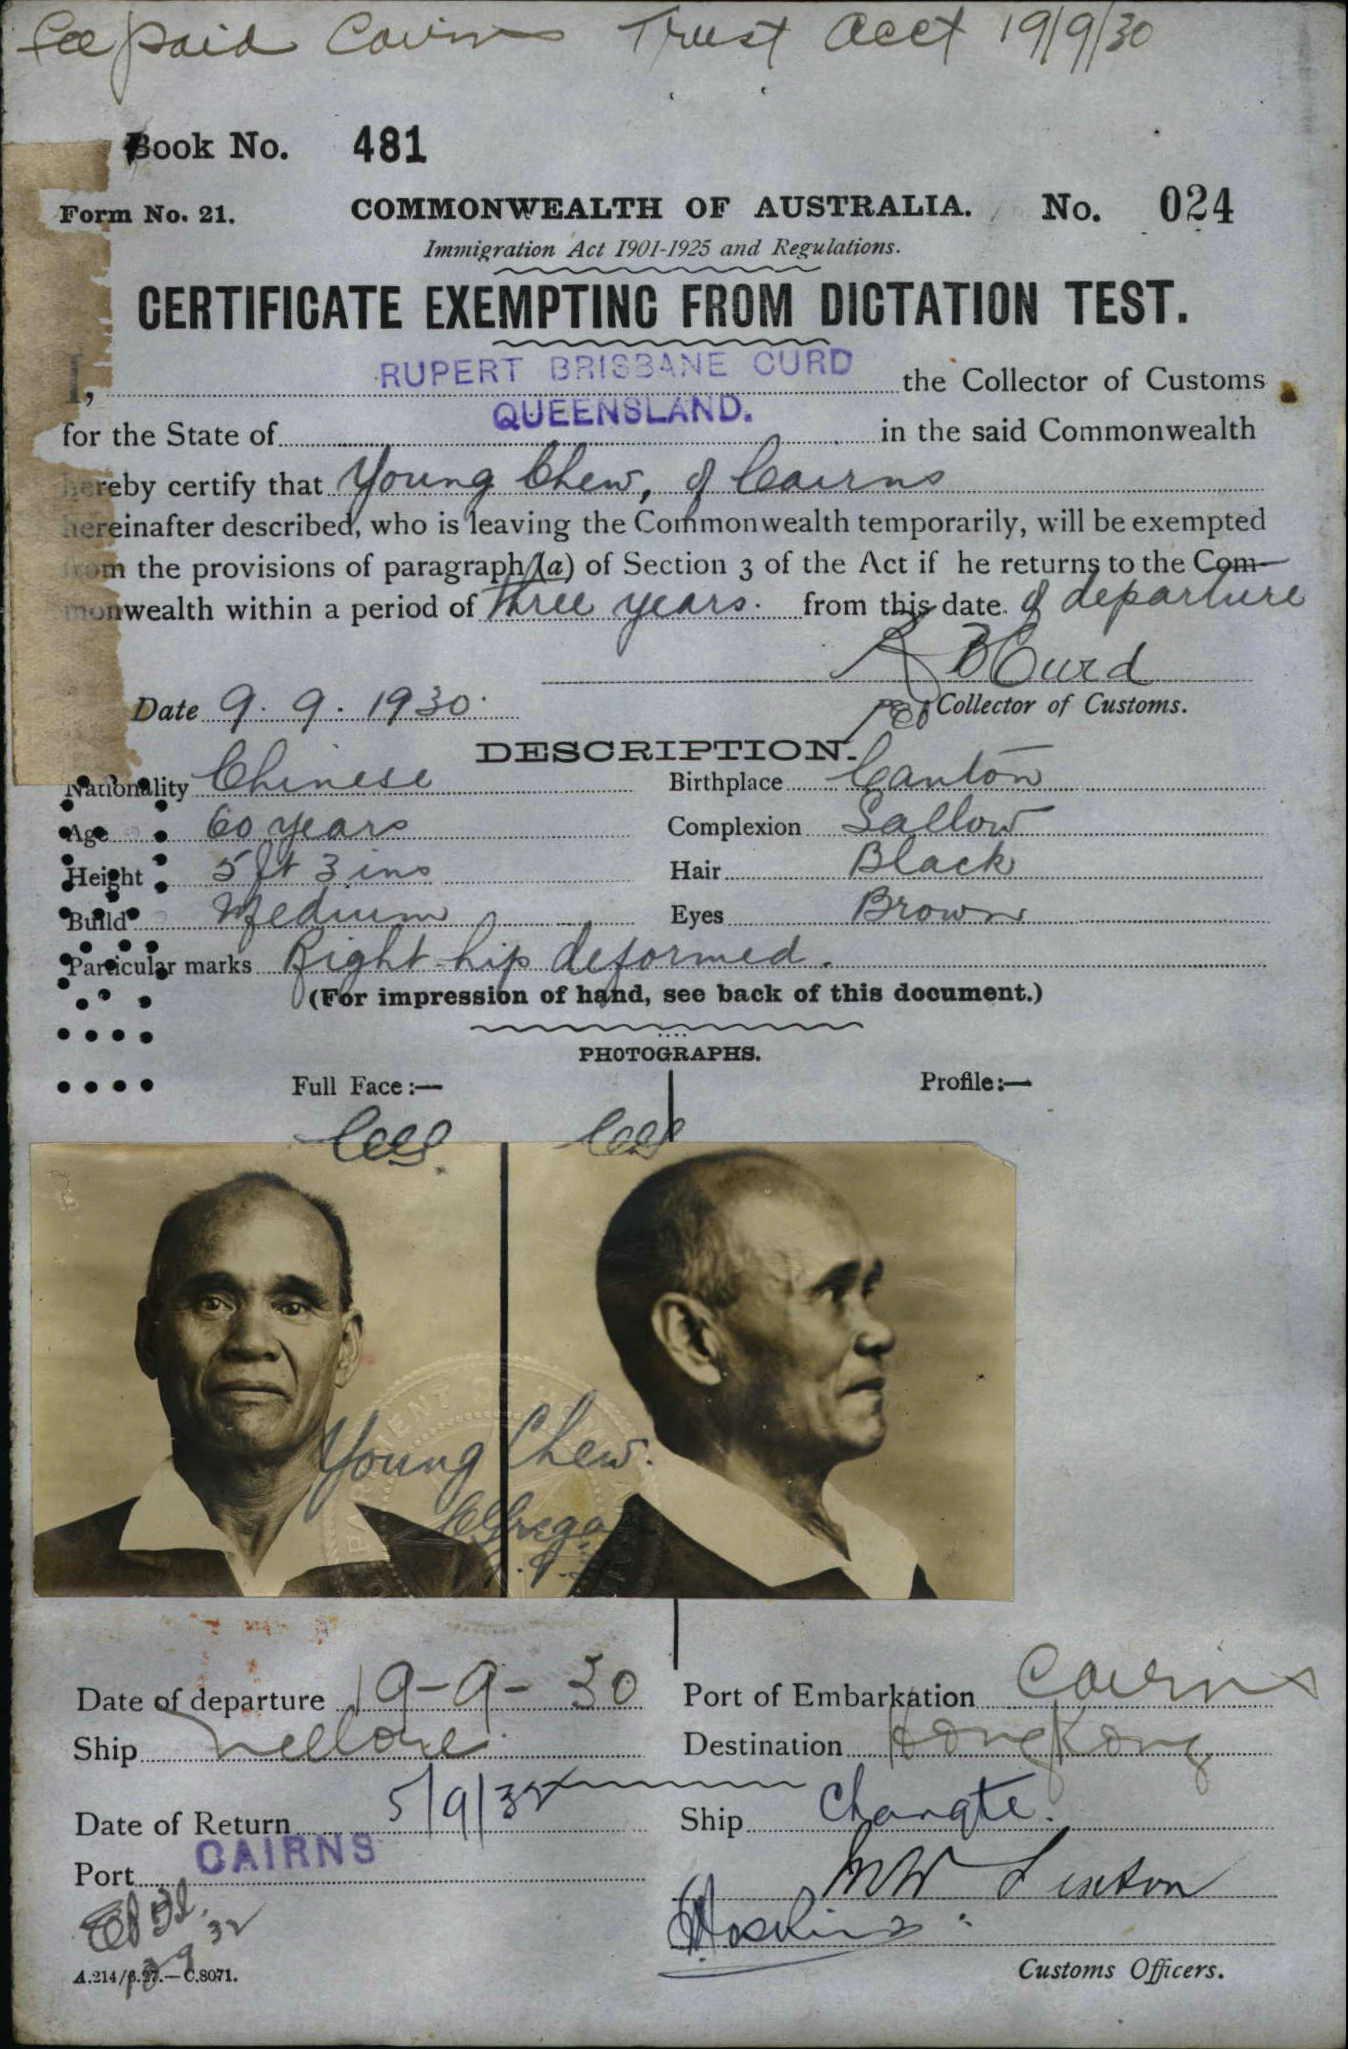 Fee paid Cairns Trust Acct 19/9/30
Book No. 481
Form No. 21. COMMONWEALTH OF AUSTRALIA. No. 024
Immigration Act 1901-1925 and Regulations.
CERTIFICATE EXEMPTING FROM DICTATION TEST.
I, RUPERT BRISBANE CURD the Collector of Customs
for the State of QUEENSLAND. in the said Commonwealth
hereby certify that Young Chew, of Cairns
hereinafter described, who is leaving the Commonwealth temporarily, will be exempted
from the provisions of paragraph (a) of Section 3 of the Act if he returns to the Com-
monwealth within a period of three years. from this date of departure
R B Curd
Date 9. 9. 1930. Collector of Customs.
DESCRIPTION.
Nationality Chinese Birthplace Canton
Age 60 years Complexion Sallow
Height 5 ft 3 ins Hair Black
Build Medium Eyes Brown
Particular marks Right hip deformed.
(For impression of hand, see back of this document.)
PHOTOGRAPHS.
Full Face:— Profile:—
Young Chew.
Date of departure 19-9-30 Port of Embarkation Cairns
Ship Nellore Destination Hong Kong
Date of Return 5/9/32 Ship Changte.
Port CAIRNS
Customs Officers.
A.214/6.27.—C.8071.